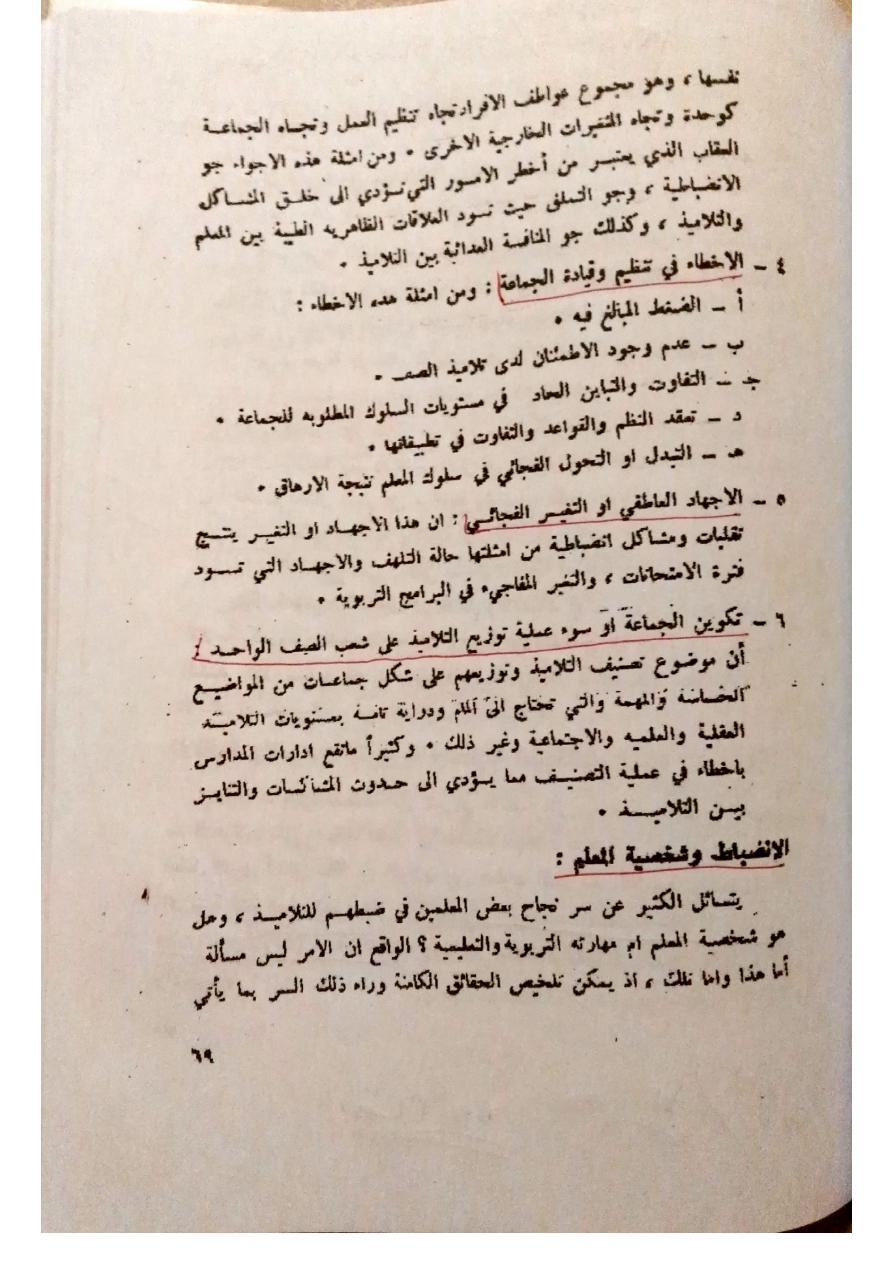 نفسها ، وهو مجموع عواطف الافراد تجاه تنظيم العمل وتجاه الجماعة
كوحدة وتجاه المتغيرات الخارجية الاخرى . ومن امثلة هذه الاجواء جو
العقاب الذي يعتبر من أخطر الامور التي تؤدي الى خلق المشاكل
الانضباطية ، وجو التملق حيث تسود العلاقات الظاهريه الطيبة بين المعلم
والتلاميذ ، وكذلك جو المنافسة العدائية بين التلاميذ .
٤ – الاخطاء في تنظيم وقيادة الجماعة : ومن امثلة هذه الاخطاء :
أ – الضغط المبالغ فيه .
ب – عدم وجود الاطمئنان لدى تلاميذ الصف .
جـ – التفاوت والتباين الحاد في مستويات السلوك المطلوبه للجماعة .
د – تعقد النظم والقواعد والتفاوت في تطبيقاتها .
هـ – التبدل او التحول الفجائي في سلوك المعلم نتيجة الارهاق .
٥ – الاجهاد العاطفي او التغير الفجائي : ان هذا الاجهاد او التغير ينتج
تقلبات ومشاكل انضباطية من امثلتها حالة التلهف والاجهاد التي تسود
فترة الامتحانات ، والتغير المفاجيء في البرامج التربوية .
٦ – تكوين الجماعة أو سوء عملية توزيع التلاميذ على شعب الصف الواحد :
أن موضوع تصنيف التلاميذ وتوزيعهم على شكل جماعات من المواضيع
الحساسة والمهمة والتي تحتاج الى المام ودراية تامة بمستويات التلاميذ
العقلية والعلميه والاجتماعية وغير ذلك . وكثيراً ماتقع ادارات المدارس
باخطاء في عملية التصنيف مما يؤدي الى حدوث المشاكسات والتنابز
بين التلاميذ .
الانضباط وشخصية المعلم :
يتسائل الكثير عن سر نجاح بعض المعلمين في ضبطهم للتلاميذ ، وهل
هو شخصية المعلم ام مهارته التربوية والتعليمية ؟ الواقع ان الامر ليس مسألة
أما هذا واما تلك ، اذ يمكن تلخيص الحقائق الكامنة وراء ذلك السر بما يأتي
٦٩